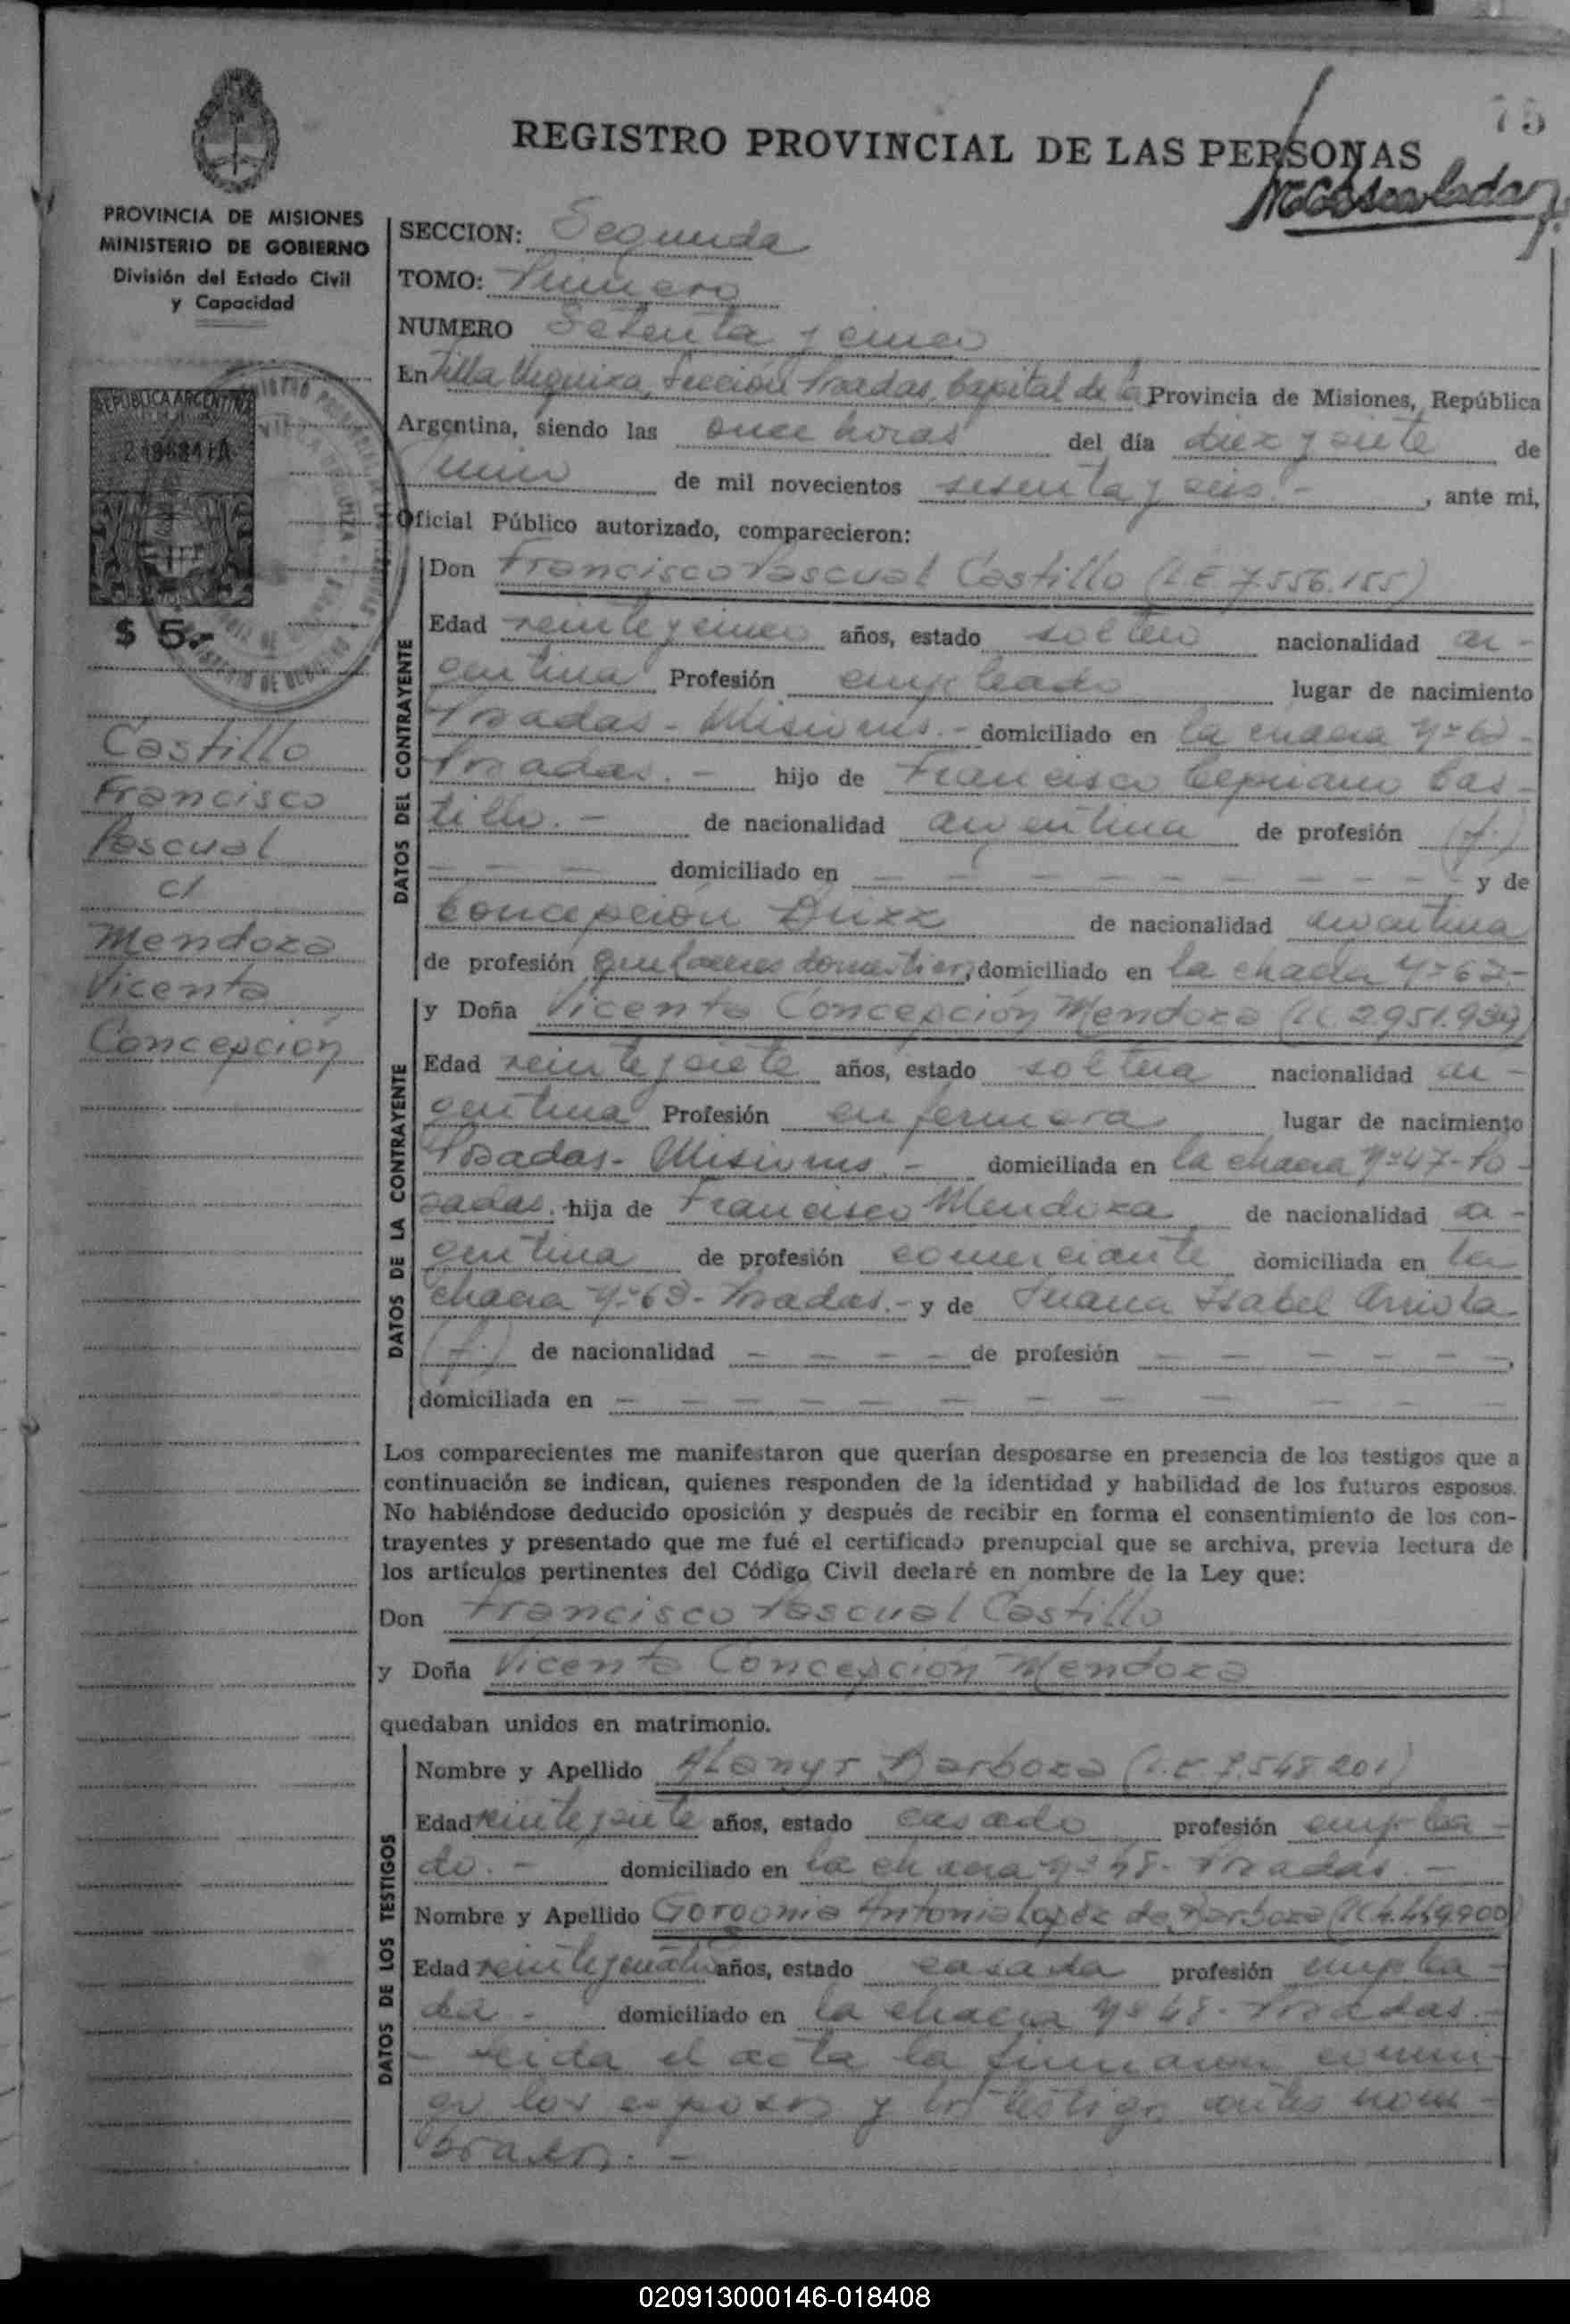 75
REGISTRO PROVINCIAL DE LAS PERSONAS
PROVINCIA DE MISIONES
MINISTERIO DE GOBIERNO
División del Estado Civil
y Capacidad
REPUBLICA ARGENTINA
$ 5.-
Castillo
Francisco
Pascual
c/
Mendoza
Vicenta
Concepción
SECCION: Segunda
TOMO: Primero
NUMERO Setenta y cinco
En Villa Urquiza, Sección Posadas, Capital de la Provincia de Misiones, República
Argentina, siendo las once horas del día diez y siete de
de mil novecientos sesenta y seis.- , ante mi,
Oficial Público autorizado, comparecieron:
DATOS DEL CONTRAYENTE
Don Francisco Pascual Castillo (L.E 7.556.155)
Edad veinte y cinco años, estado soltero nacionalidad ar-
gentina Profesión empleado lugar de nacimiento
Posadas - Misiones.- domiciliado en la chacra Nº 62-
Posadas.- hijo de Francisco Cipriano Cas-
tillo.- de nacionalidad argentina de profesión (f.)
domiciliado en y de
Concepción de nacionalidad argentina
de profesión quehaceres domésticos, domiciliado en la chacra Nº 62.-
DATOS DE LA CONTRAYENTE
y Doña Vicenta Concepción Mendoza (LC 2.951.939)
Edad veinte y siete años, estado soltera nacionalidad ar-
gentina Profesión enfermera lugar de nacimiento
Posadas - Misiones.- domiciliada en la chacra Nº 47-Po-
sadas. hija de Francisco Mendoza de nacionalidad ar-
gentina de profesión comerciante domiciliada en la
chacra Nº 63- Posadas.- y de Juana Isabel Arriola
(f.) de nacionalidad de profesión ,
domiciliada en
Los comparecientes me manifestaron que querían desposarse en presencia de los testigos que a
continuación se indican, quienes responden de la identidad y habilidad de los futuros esposos.
No habiéndose deducido oposición y después de recibir en forma el consentimiento de los con-
trayentes y presentado que me fué el certificado prenupcial que se archiva, previa lectura de
los artículos pertinentes del Código Civil declaré en nombre de la Ley que:
Don Francisco Pascual Castillo
y Doña Vicenta Concepción Mendoza
quedaban unidos en matrimonio.
DATOS DE LOS TESTIGOS
Nombre y Apellido Barboza (L.E 7.548.201)
Edad veinte y siete años, estado casado profesión emplea-
do.- domiciliado en la chacra Nº 48- Posadas.-
Nombre y Apellido Gorgonia Antonia Lopez de Barboza (LC 4.449.900)
Edad veinte y cuatro años, estado casada profesión emplea-
da- domiciliado en la chacra Nº 48- Posadas.-
- Leida el acta la firmaron conmi-
go los esposos y los testigos antes nom-
brados.-
020913000146-018408